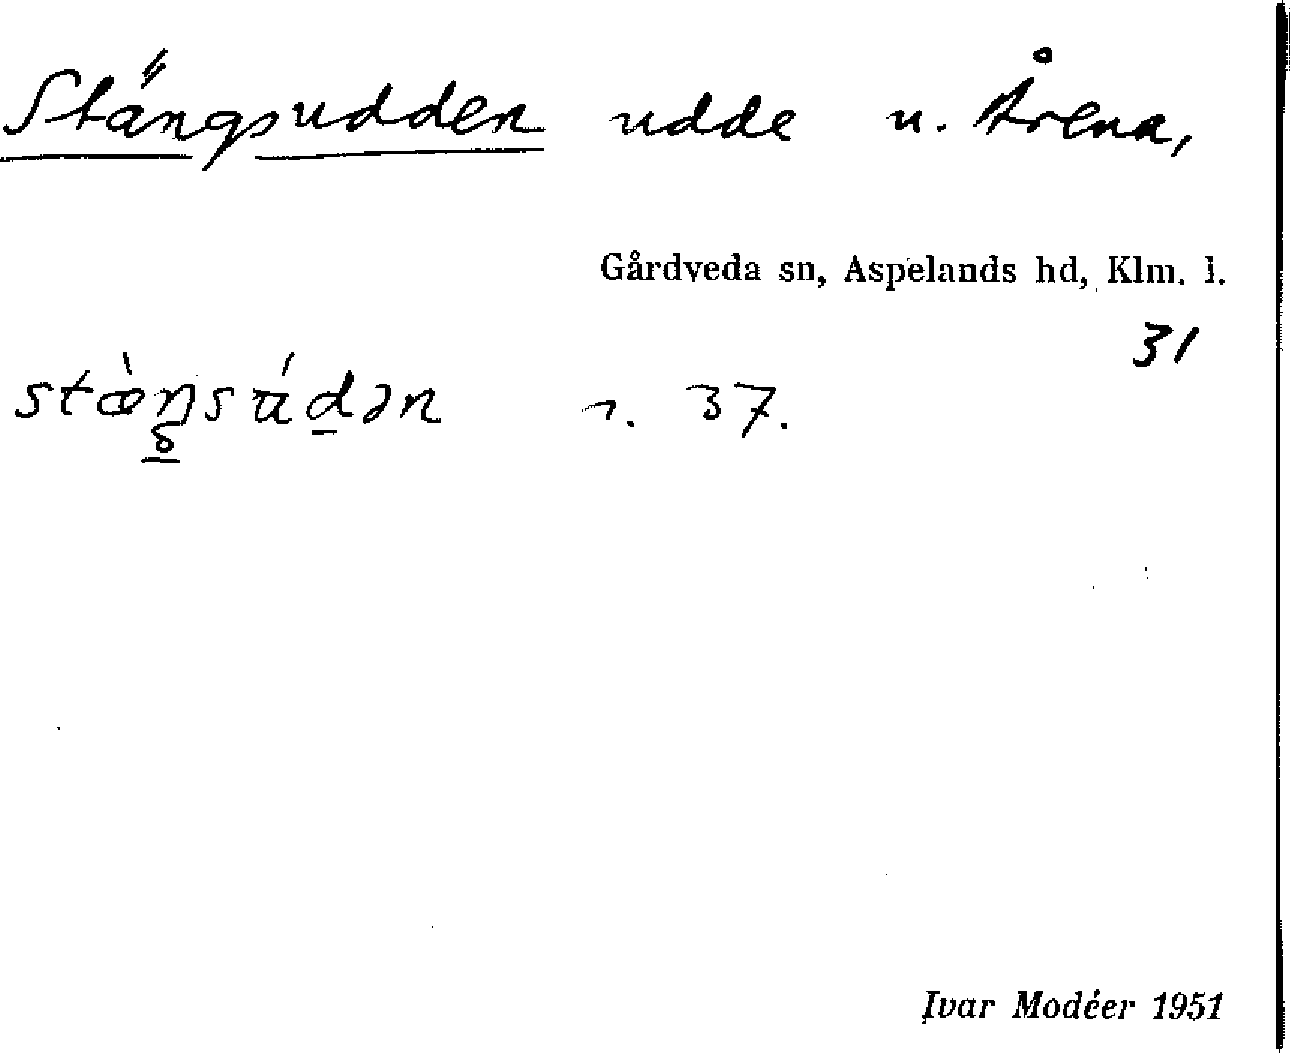 Stängsudden udde u. Årena,
Gårdveda sn, Aspelands hd, Klm. l.
31
37.
Ivar Modéer 1951